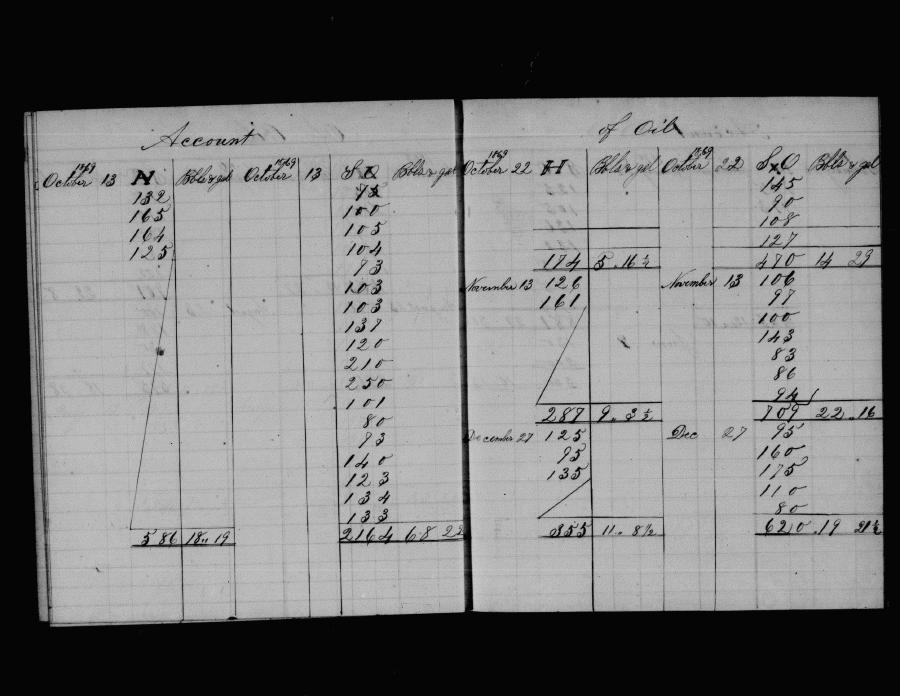 Account
1869 1869
October 13 N Bbls & gal October 13 S O Bbls & gal
132 75
165 100
164 105
125 104
73
103
103
137
120
210
250
101
80
73
140
123
134
133
586 18 .. 19 2164 68 22
of Oil
1869 1869
October 22 H Bbls & gal October 22 S x O Bbls & gal
145
90
108
127
174 5 .. 16 ½ 470 14 29
November 13 126 November 13 106
161 97
100
143
83
86
94
287 9 .. 3 ½ 709 22 .. 16
December 27 125 Dec 27 95
95 160
135 175
110
80
355 11 .. 8 ½ 620 . 19 21 ½